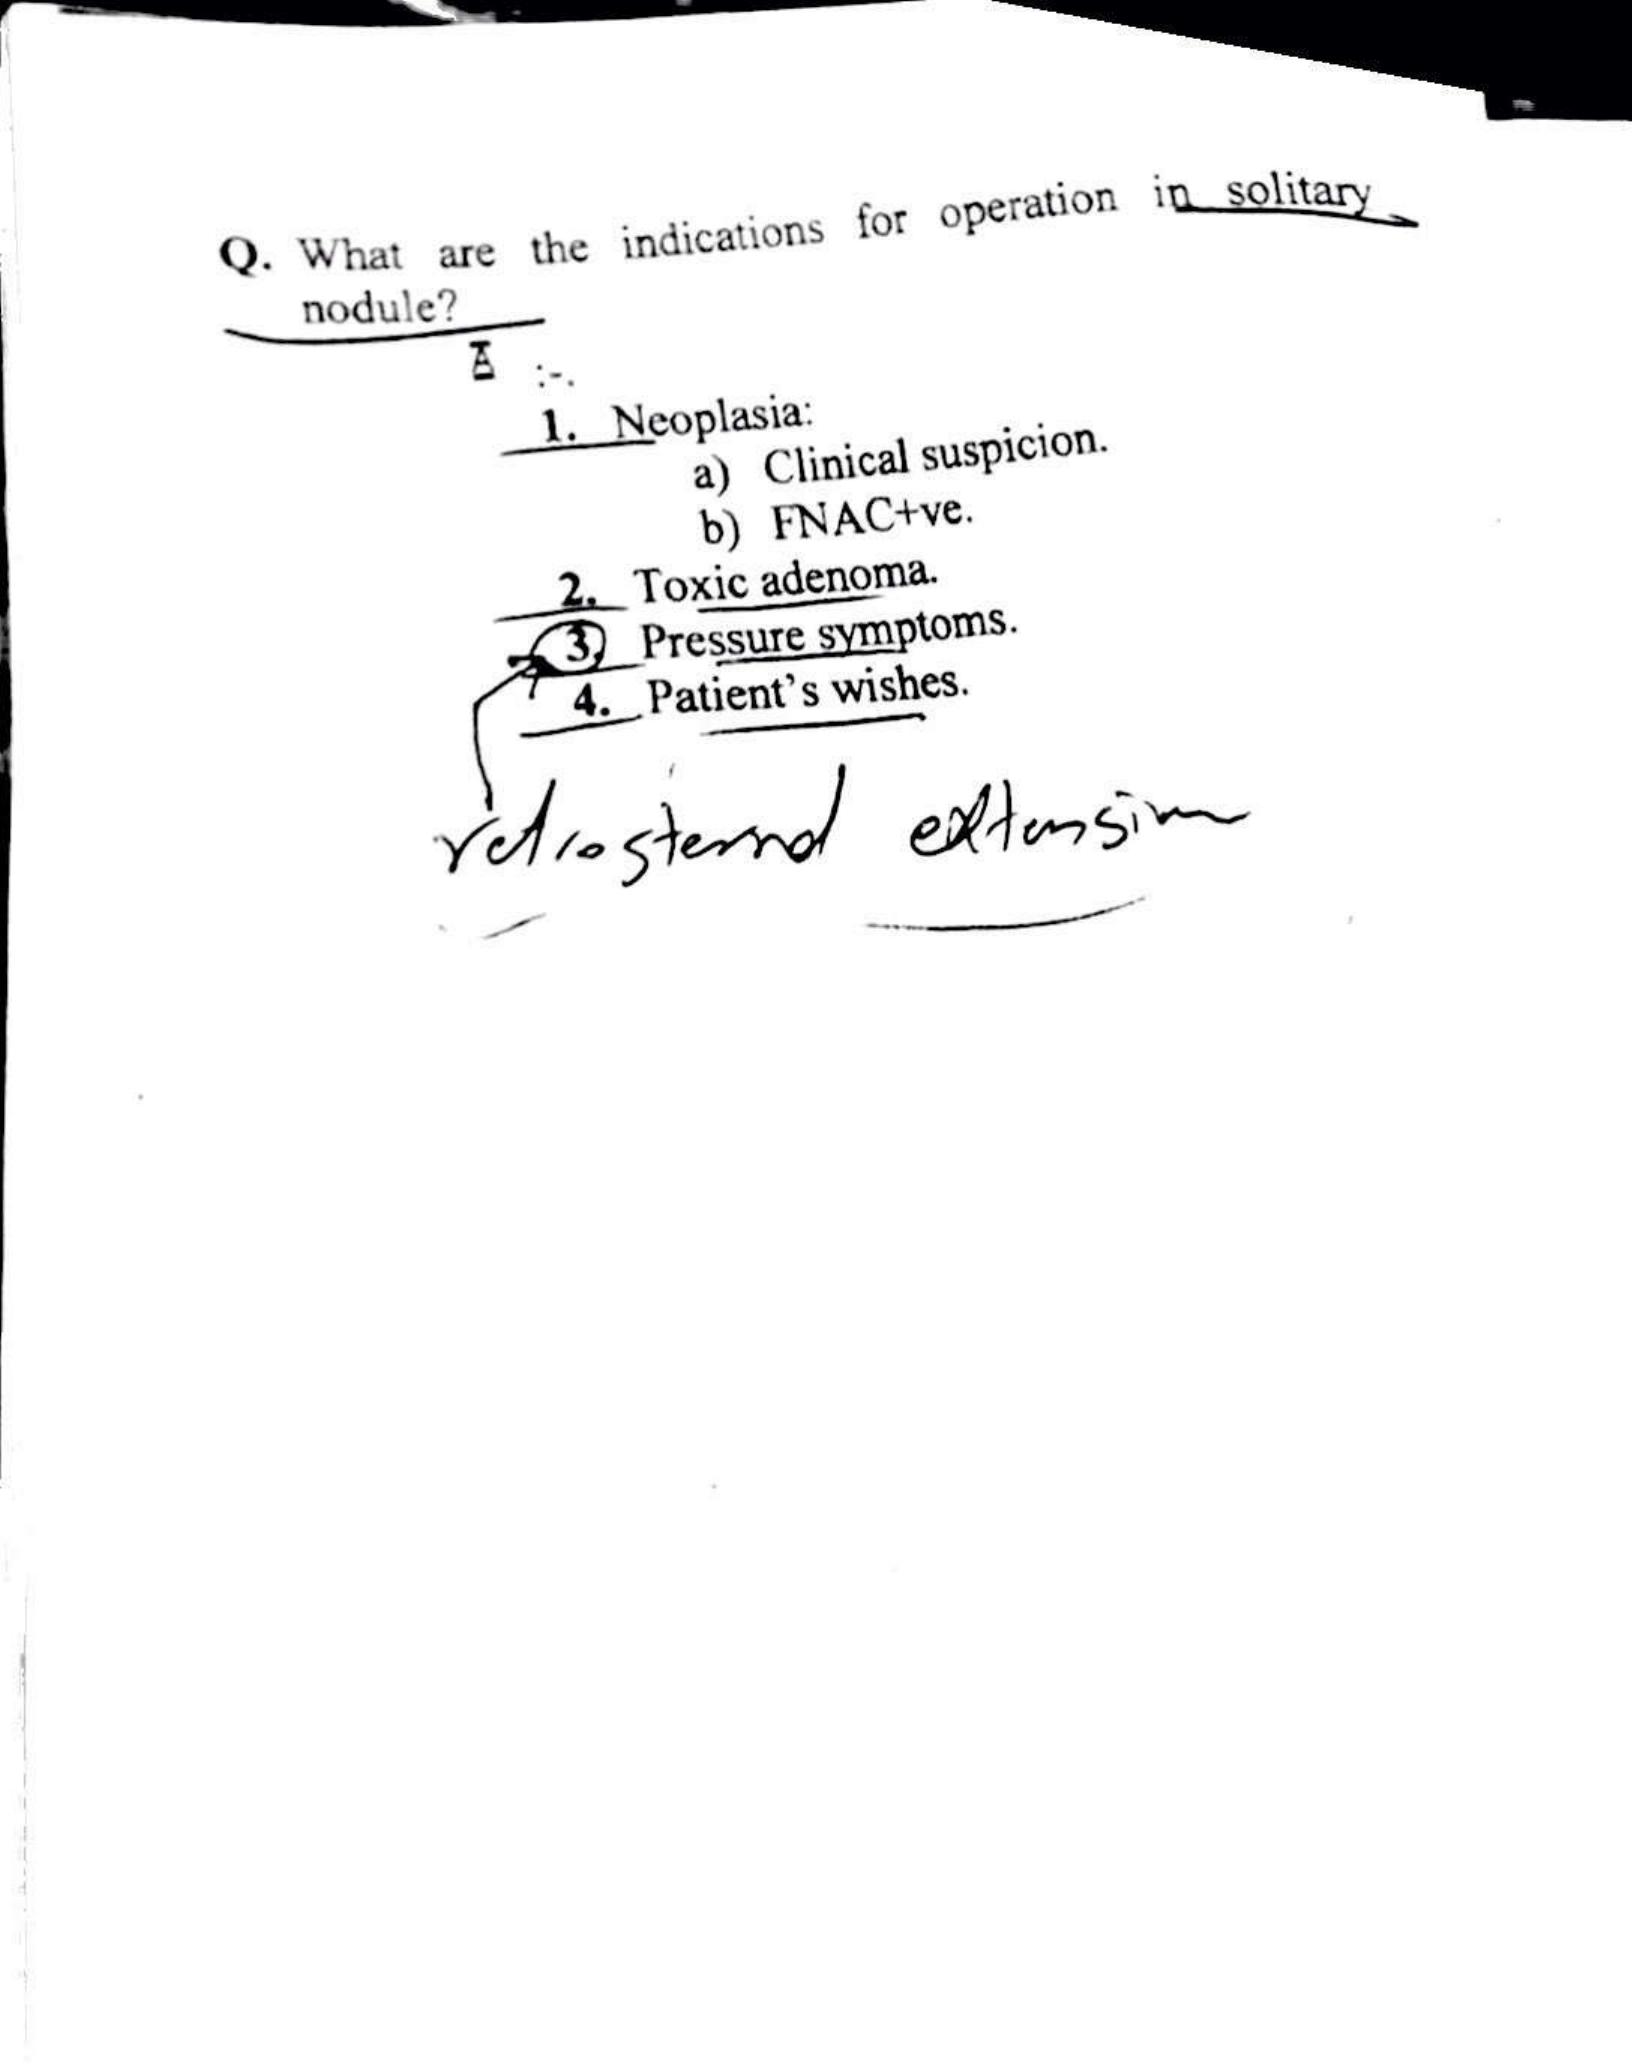 Q. What are the indications for operation in solitary
nodule?
A :-.
1. Neoplasia:
a) Clinical suspicion.
b) FNAC+ve.
2. Toxic adenoma.
3. Pressure symptoms.
4. Patient's wishes.
retrosternal extension